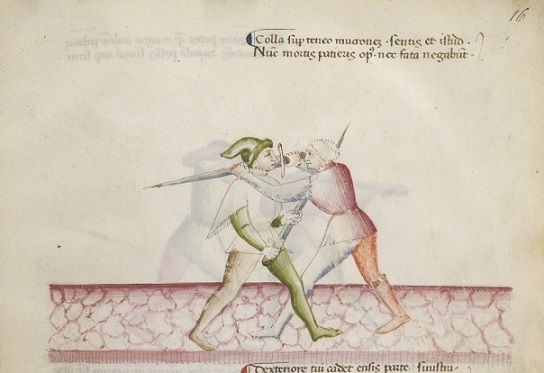 16
Colla suꝑ teneo mucronez · sentis et istud ·
Nūc mortis patieris opꝰ · nec fata negabūt ·
Dexteriore tui cadet ensis parte sinistra ·